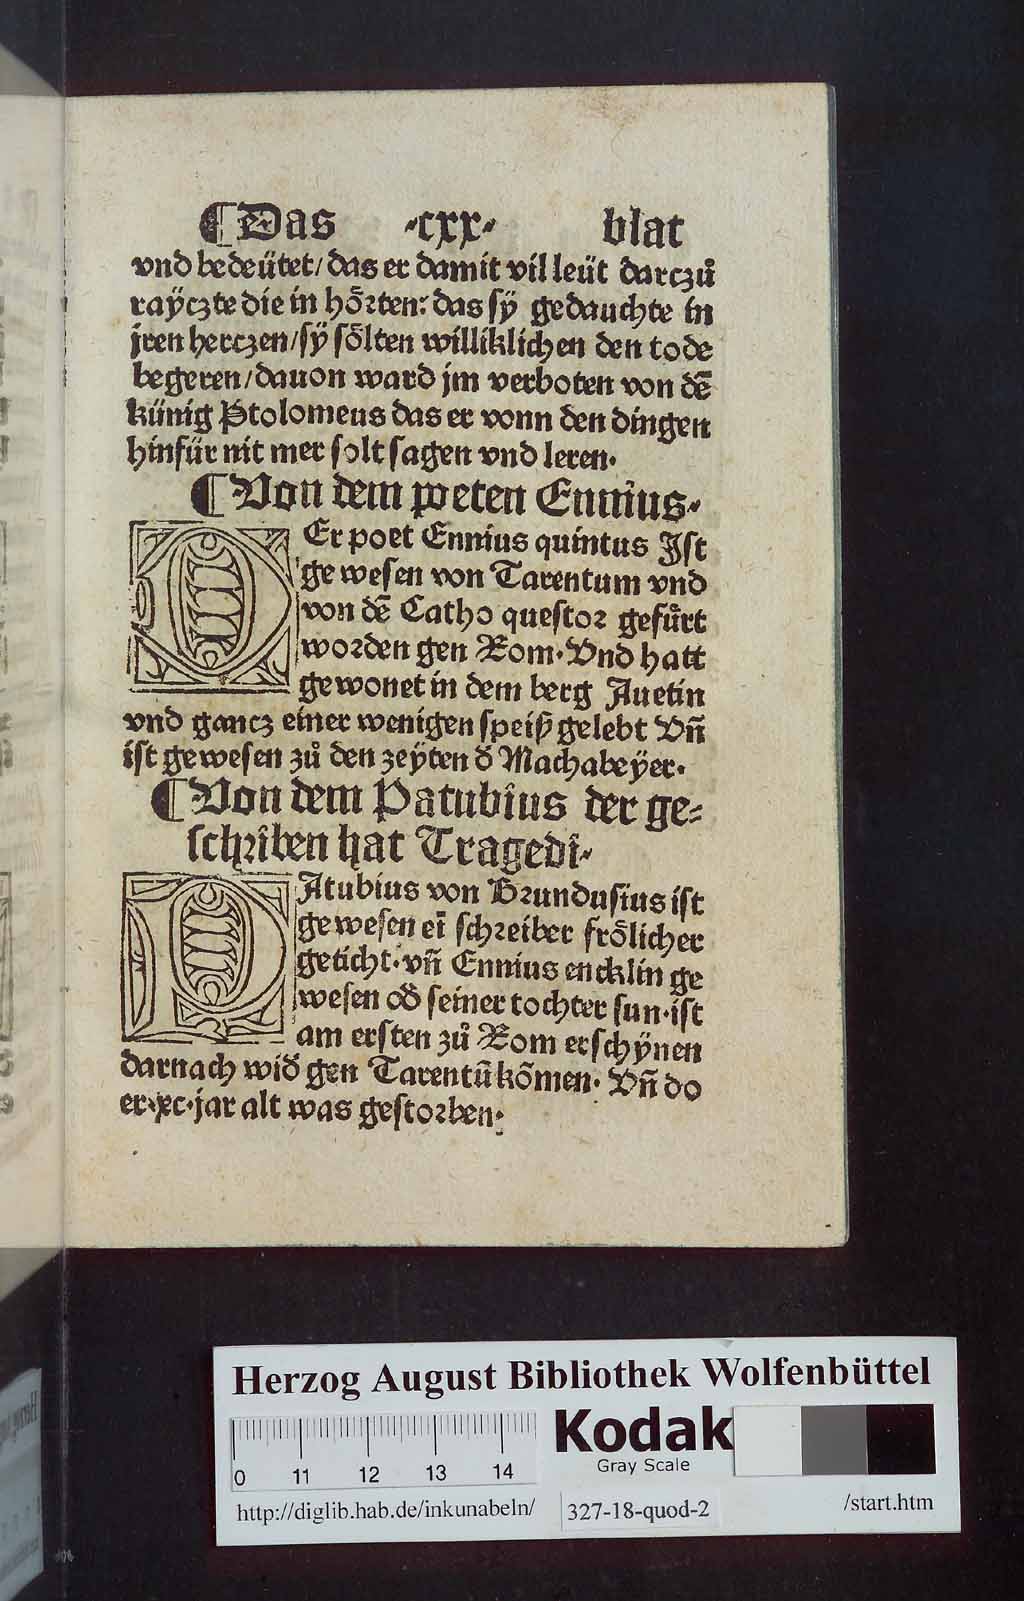 ¶Das ·cxx· blat
vnd bedeütet/das er damit vil leüt darczů
rayͤczte die in hoͤrten: das sÿ gedauchte in
jren herczen/sÿ soͤlten williklichen den tode
begeren/dauon ward jm verboten von dē
künig Ptolomeus das er vonn den dingen
hinfür nit mer solt sagen vnd leren·
¶Von dem poeten Ennius·
DEr poet Ennius quintus Ist
gewesen von Tarentum vnd
von dē Catho questor gefuͤrt
worden gen Rom·Vnd hatt
gewonet in dem berg Auetin
vnd gancz einer wenigen speiß gelebt Vn̄
ist gewesen zů den zeÿten đ Machabeÿer·
¶Von dem Patubius der ge⸗
schriben hat Tragedi·
PAtubius von Brundusius ist
gewesen ei̅ schreiber froͤlicher
geticht·vn̄ Ennius encklin ge
wesen ođ seiner tochter sun·ist
am ersten zů Rom erschÿnen
darnach wiđ gen Tarentū kōmen· Vn̄ do
er·xc·jar alt was gestorben·
Herzog August Bibliothek Wolfenbüttel
Kodak
Gray Scale
0 11 12 13 14
http://diglib.hab.de/inkunabeln/ 327-18-quod-2 /start.htm